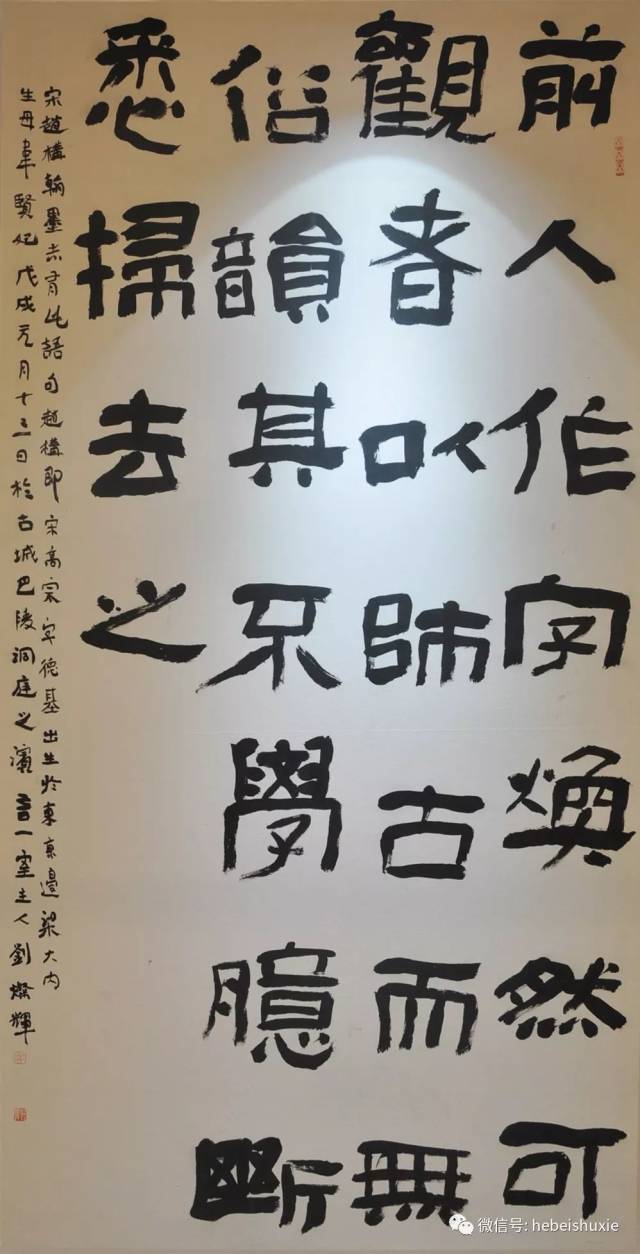 前人作字焕然可
觀者以師古而無
俗韻其不學臆斷
悉掃去之
宋趙構翰墨志有此語句趙構即宋高宗字德基出生於東京邊梁大内
生母韋賢妃戊戌元月十三日於古城巴陵洞庭之濱言一室主人劉燦輝
微信号: hebeishuxie